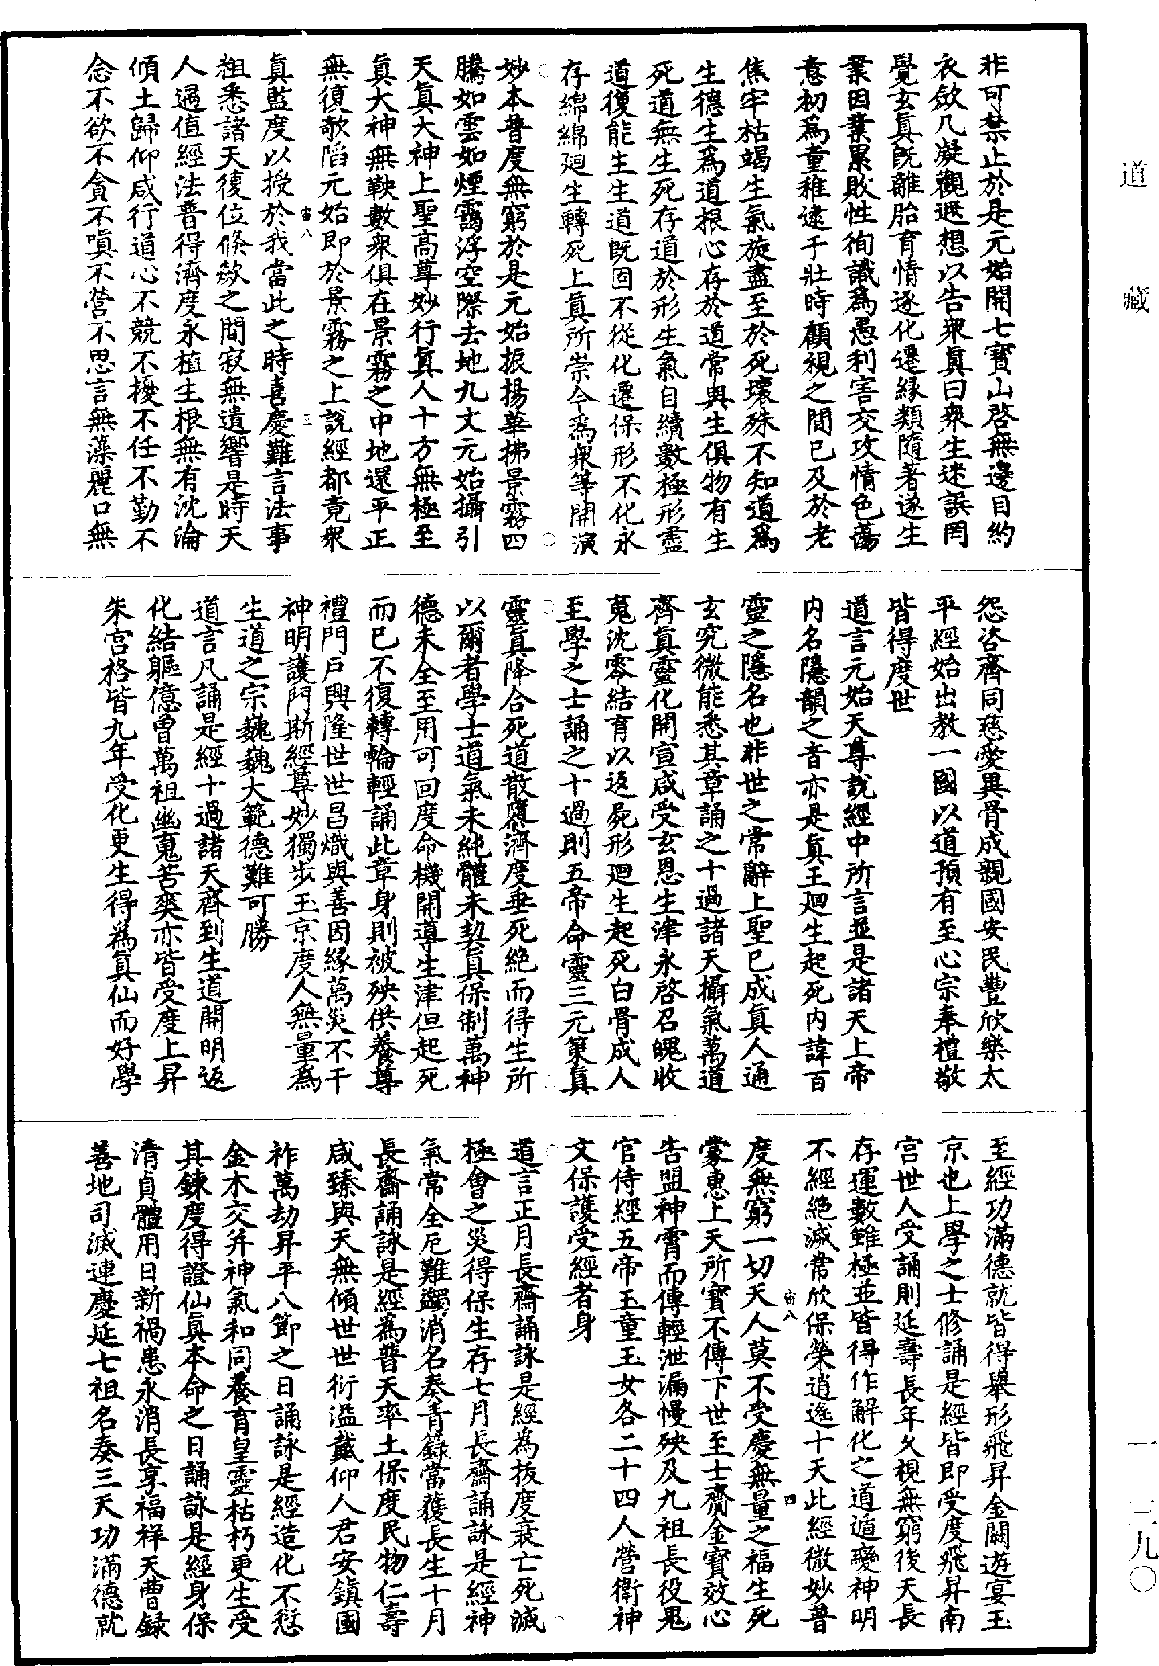 道藏
一三九〇
非可禁止於是元始開七寶山啓無邊目約
衣斂几凝觀遐想以告衆眞曰衆生迷誤罔
覺玄眞既離胎育情逐化遷緣類隨著遂生
業因業累敗性徇識爲愚利害交攻情色蕩
意初爲童稚逮于壯時顧視之間已及於老
焦牢枯竭生氣旋盡至於死壞殊不知道爲
生德生爲道根心存於道常與生俱物有生
死道無生死存道於形生氣自續數極形盡
道復能生生道既固不從化遷保形不化永
存綿綿廻生轉死上眞所崇今爲衆等開演
妙本普度無窮於是元始振揚華拂景霧四
騰如雲如煙靄浮空際去地九丈元始攝引
天眞大神上聖高尊妙行眞人十方無極至
眞大神無鞅數衆俱在景霧之中地還平正
無復欹陷元始即於景霧之上說經都竟衆
宙八
三
眞監度以授於我當此之時喜慶難言法事
粗悉諸天復位倏歘之間寂無遺響是時天
人遇值經法普得濟度永植生根無有沈淪
傾土歸仰咸行道心不競不擾不任不勤不
念不欲不貪不嗔不營不思言無藻麗口無
怨咨齊同慈愛異骨成親國安民豐欣樂太
平經始出教一國以道預有至心宗奉禮敬
皆得度世
道言元始天尊說經中所言並是諸天上帝
内名隱韻之音亦是眞王廻生起死内諱百
靈之隱名也非世之常辭上聖已成眞人通
玄究微能悉其章誦之十過諸天攝氣萬道
齊眞靈化開宣咸受玄恩生津永啓召魄收
䰟沈零結育以返屍形廻生起死白骨成人
至學之士誦之十過則五帝命靈三元策眞
靈眞降合死道散墮濟度垂死絕而得生所
以爾者學士道氣未純體未契眞保制萬神
德未全至用可回度命機開導生津但起死
而已不復轉輪輕誦此章身則被殃供養尊
禮門戶興隆世世昌熾與善因緣萬災不干
神明護門斯經尊妙獨步玉京度人無量爲
生道之宗巍巍大範德難可勝
道言凡誦是經十過諸天齊到生道開明返
化結軀億曾萬祖幽䰟苦爽亦皆受度上昇
朱宮格皆九年受化更生得爲眞仙而好學
至經功滿德就皆得舉形飛昇金闕遊宴玉
京也上學之士修誦是經皆即受度飛昇南
宮世人受誦則延壽長年久視無窮後天長
存運數雖極並皆得作解化之道遁變神明
不經絕滅常欣保榮逍遙十天此經微妙普
宙八
四
度無窮一切天人莫不受慶無量之福生死
蒙惠上天所寶不傳下世至士齎金寶效心
告盟神霄而傳輕泄漏慢殃及九祖長役鬼
官侍經五帝玉童玉女各二十四人營衛神
文保護受經者身
道言正月長齋誦詠是經爲拔度衰亡死滅
極會之災得保生存七月長齋誦詠是經神
氣常全厄難蠲消名奏青籙當獲長生十月
長齋誦詠是經爲普天率土保度民物仁壽
咸臻與天無傾世世衍溢戴仰人君安鎮國
祚萬劫昇平八節之日誦詠是經造化不愆
金木交并神氣和同養育皇靈枯朽更生受
其鍊度得證仙眞本命之日誦詠是經身保
清貞體用日新禍患永消長享福祥天曹錄
善地司滅連慶延七祖名奏三天功滿德就